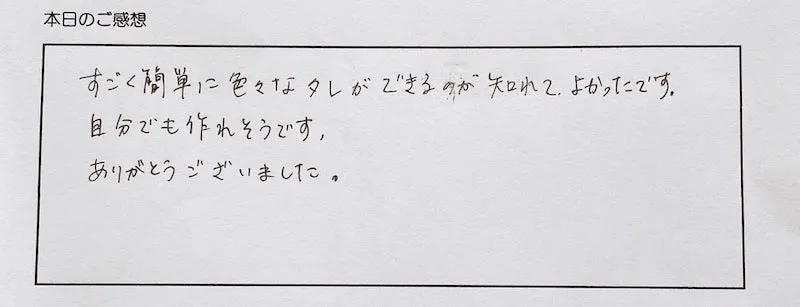 本日のご感想
すごく簡単に色々なタレができるのが知れて、よかったです。
自分でも作れそうです。
ありがとうございました。